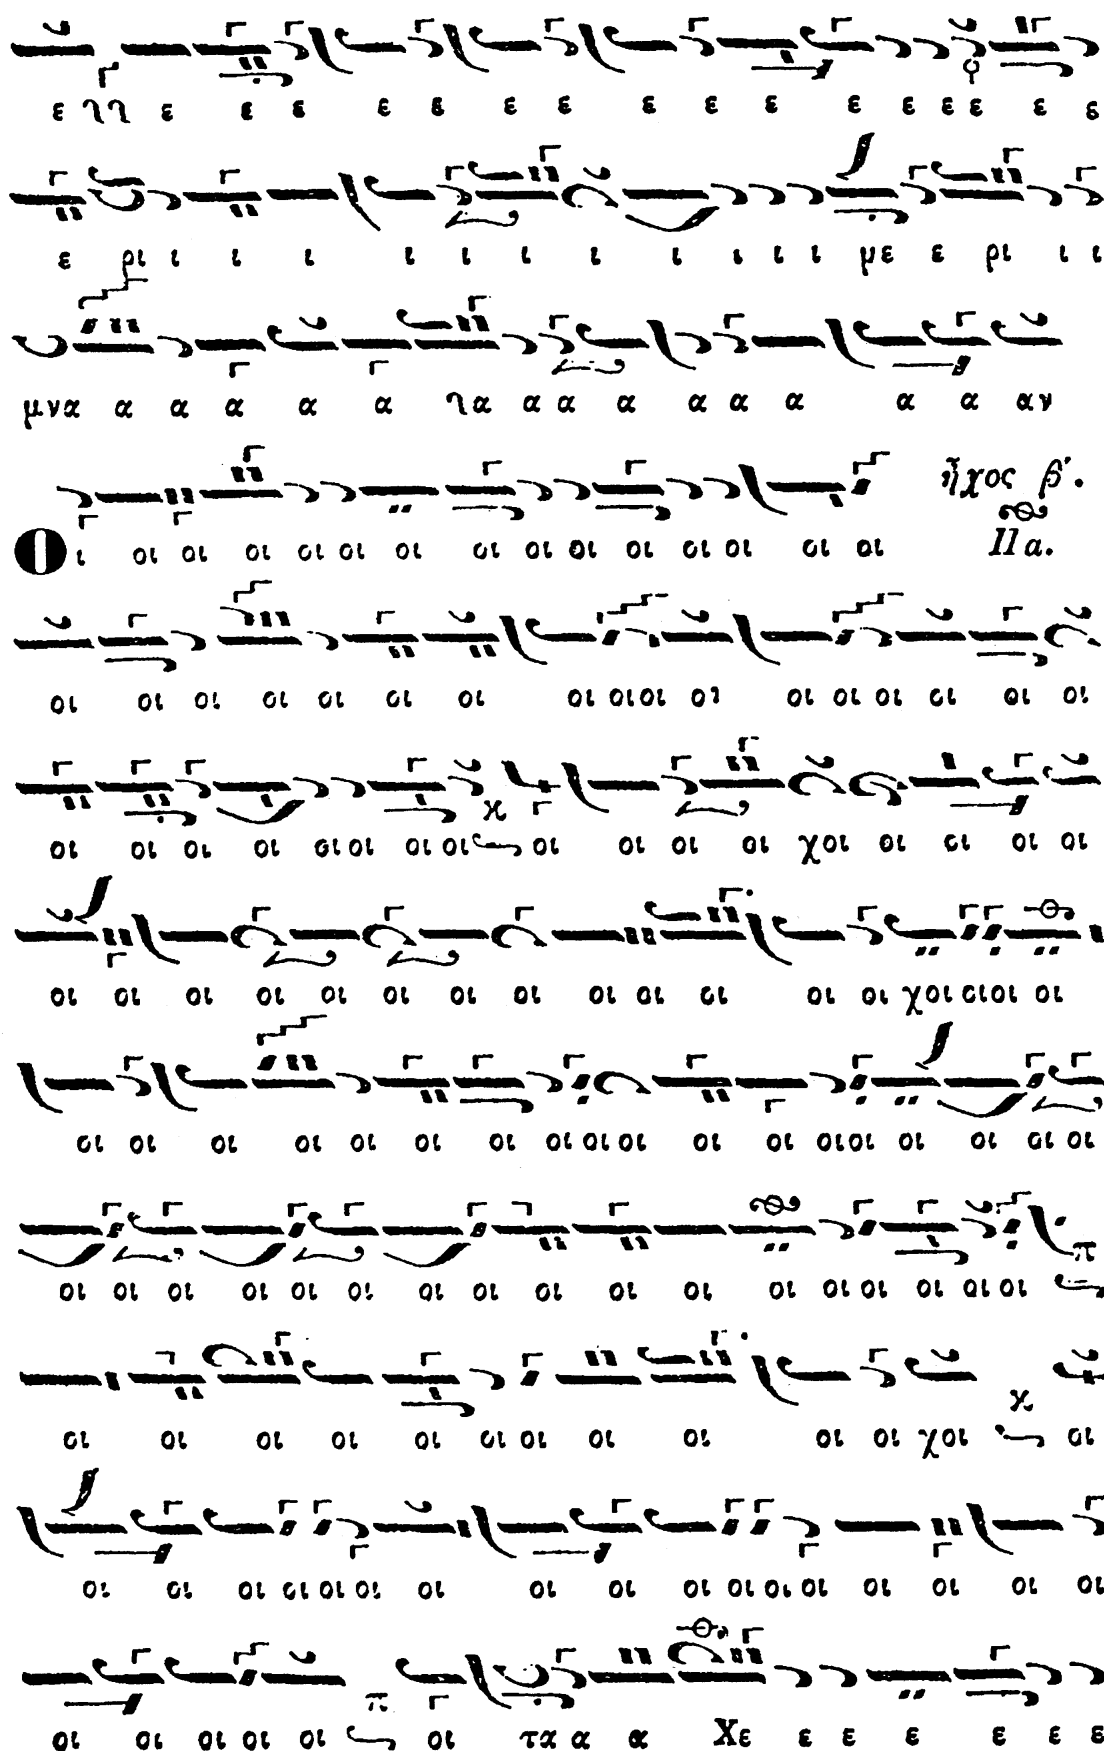 ε γγ ε ε ε ε ε ε ε ε ε ε ε ε ε ε ε ε
ε ρι ι ι ι ι ι ι ι ι ι ι ι με ε ρι ι ι
μνα α α α α α γα α α α α α α α α αν
ἦχος β'.
Οι οι οι οι οι οι οι οι οι οι οι οι οι οι οι Πα.
οι οι οι οι οι οι οι οι οι οι οι οι οι οι οι οι οι
π
οι οι οι οι οι οι οι οι οι οι οι οι χοι οι οι οι οι
οι οι οι οι οι οι οι οι οι οι οι οι οι χοι οι οι οι
οι οι οι οι οι οι οι οι οι οι οι οι οι οι οι οι οι
π
οι οι οι οι οι οι οι οι οι οι οι οι οι οι οι οι
χ
οι οι οι οι οι οι οι οι οι οι οι χοι οι
οι οι οι οι οι οι οι οι οι οι οι οι οι οι οι οι οι
π
οι οι οι οι οι οι τα α α Χε ε ε ε ε ε ε